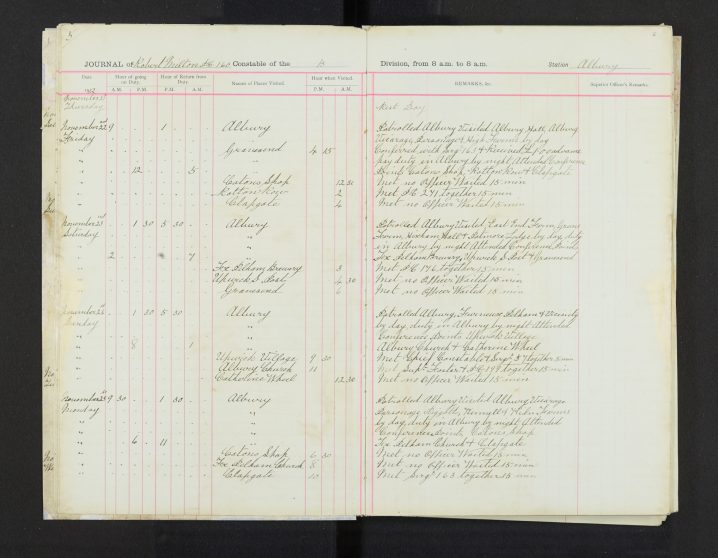 JOURNAL of Robert Milton P.C 160 Constable of the B Division, from 8 a.m. to 8 a.m. Station Albury
Date. Hour of going on Duty. Hour of Return from Duty. Names of Places Visited. Hour when Visited. REMARKS, &c. Superior Officer's Remarks.
1912 A.M. P.M. A.M. P.M. P.M. A.M.
November 21st
Thursday Rest Day
November 22nd 9 1 Albury Patrolled Albury Visited Albury Hall, Albury
Friday Vicarage, Parsonage & High Farms by day
Gravesend 4 15 Conferred with Sergt 163 & Received
pay duty in Albury by night Attended Conference
12 5 Points Catons Shop, Patton Row & Clapgate
Catons Shop 12 30 Met no Officer Waited 15 min
Patton Row 2 Met P.C 271 together 15 min
Clapgate 4 Met no Officer Waited 15 min
November 23rd 1 30 5 30 Albury Patrolled Albury Visited East End Farm, Grays
Saturday Farm, Hall & Patmore Lodge by day duty
in Albury by night Attended Conference Points
2 7 Fx Pelham Brewery, Upwick S Post & Gravesend
Fx Pelham Brewery 3 Met P.C 176 together 15 min
Upwick S Post 4 30 Met no Officer Waited 15 min
Gravesend 6 Met no Officer Waited 15 min
November 24th 1 30 5 30 Albury Patrolled Albury, Furneaux Pelham & Vicinity
Sunday by day, duty in Albury by night Attended
Conference Points Upwick Village
8 1 Albury Church & Catherine Wheel
Upwick Village 9 30 Met Chief Constable & Sergt 37 together 5 min
Albury Church 11 Met Supt Foster & P.C 199 together 15 min
Catherine Wheel 12 30 Met no Officer Waited 15 min
November 25th 9 30 1 30 Albury Patrolled Albury Visited Albury, Vicarage
Monday Parsonage, Farms
by day, duty in Albury by night Attended
Conference Points Catons Shop
6 11 Fx Pelham Church & Clapgate
Catons Shop 6 30 Met no Officer Waited 15 min
Fx Pelham Church 8 Met no Officer Waited 15 min
Clapgate 10 Met Sergt 163 together 15 min